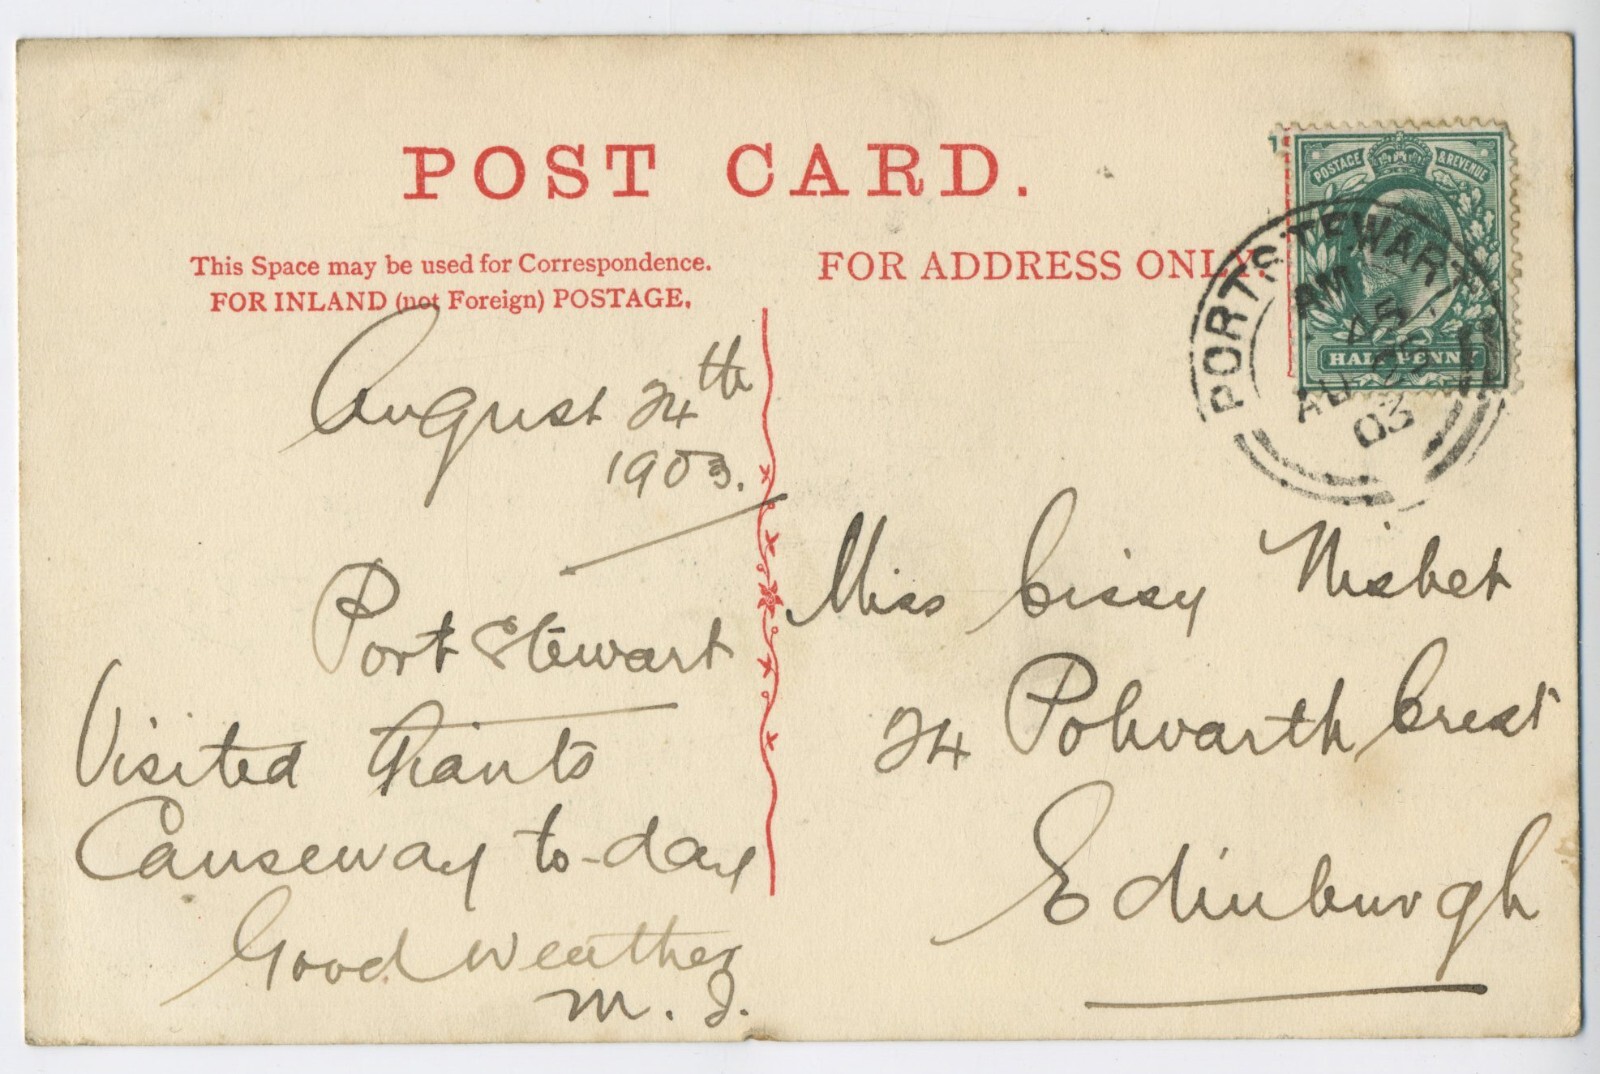 POST CARD.
This Space may be used for Correspondence.
FOR INLAND (not Foreign) POSTAGE.
FOR ADDRESS ONLY.
POSTAGE & REVENUE
HALFPENNY
PORTSTEWART
AM
AU
03
August 24th
1903.
Port Stewart
Visited Giants
Causeway to-day
Good weather
M. J.
Miss Cissy Nisbet
24 Polwarth Crest
Edinburgh